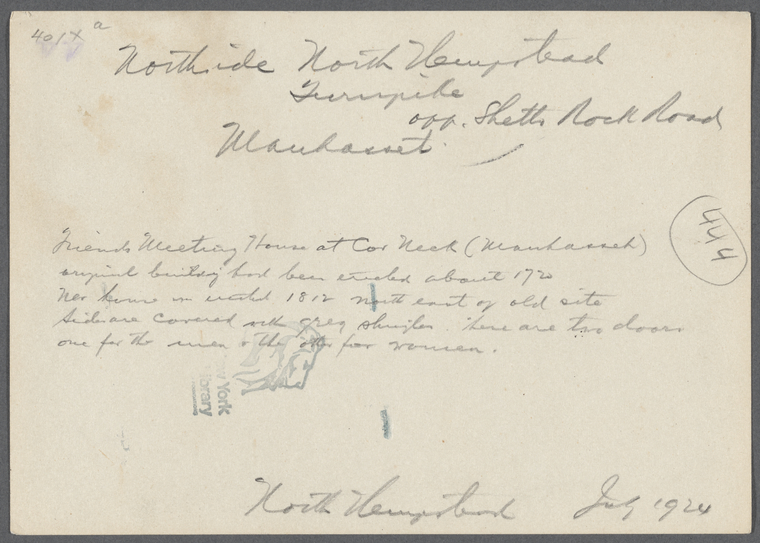 401X a
Northside North Hempstead
Turnpike
opp. Shelter Rock Road
Manhasset
Friends Meeting House at Cow Neck (Manhasset)
original building had been erected about 1720
New house was erected 1812 north east of old site
Sides are covered with grey shingles. There are two doors
one for the men & the other for women.
444
New York
Library
North Hempstead July 1924